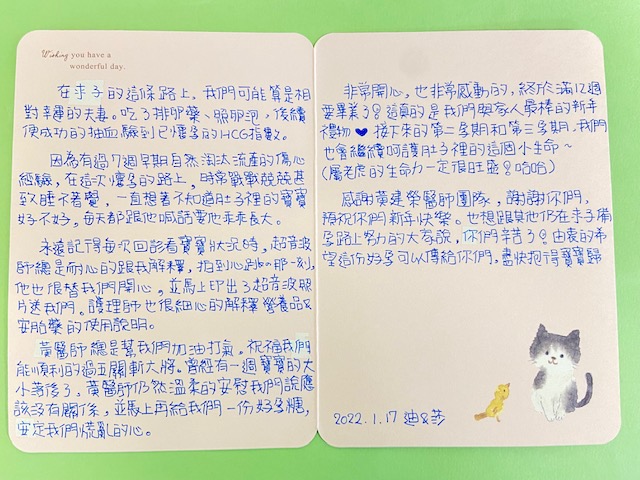 Wishing you have a
wonderful day.
在求子的這條路上，我們可能算是相
對幸運的夫妻。吃了排卵藥、照卵泡，後續
便成功的抽血驗到已懷孕的HCG指數。
因為有過7週早期自然淘汰流產的傷心
經驗，在這次懷孕的路上，時常戰戰兢兢甚
至睡不著覺，一直想著不知道肚子裡的寶寶
好不好，每天都跟他喊話要他乖乖長大。
永遠記得每次回診看寶寶狀況時，超音波
師總是耐心的跟我解釋，拍到心跳的那一刻，
他也很替我們開心，並馬上印出了超音波照
片送我們。護理師也很細心的解釋營養品&
安胎藥的使用說明。
黃醫師總是幫我們加油打氣。祝福我們
能順利的過五關斬六將。曾經有一週寶寶的大
小落後了，黃醫師仍然溫柔的安慰我們說應
該沒有關係，並馬上再給我們一份好孕糖，
安定我們慌亂的心。
非常開心，也非常感動的，終於滿12週
要畢業了！這真的是我們與家人最棒的新年
禮物♥接下來的第二孕期和第三孕期，我們
也會繼續呵護肚子裡的這個小生命～
(屬老虎的生命力一定很旺盛！哈哈)
感謝黃建榮醫師團隊，謝謝你們，
預祝你們新年快樂。也想跟其他仍在求子備
孕路上努力的大家說，你們辛苦了！由衷的希
望這份好孕可以傳給你們，盡快抱得寶寶歸
2022.1.17 迪&莎